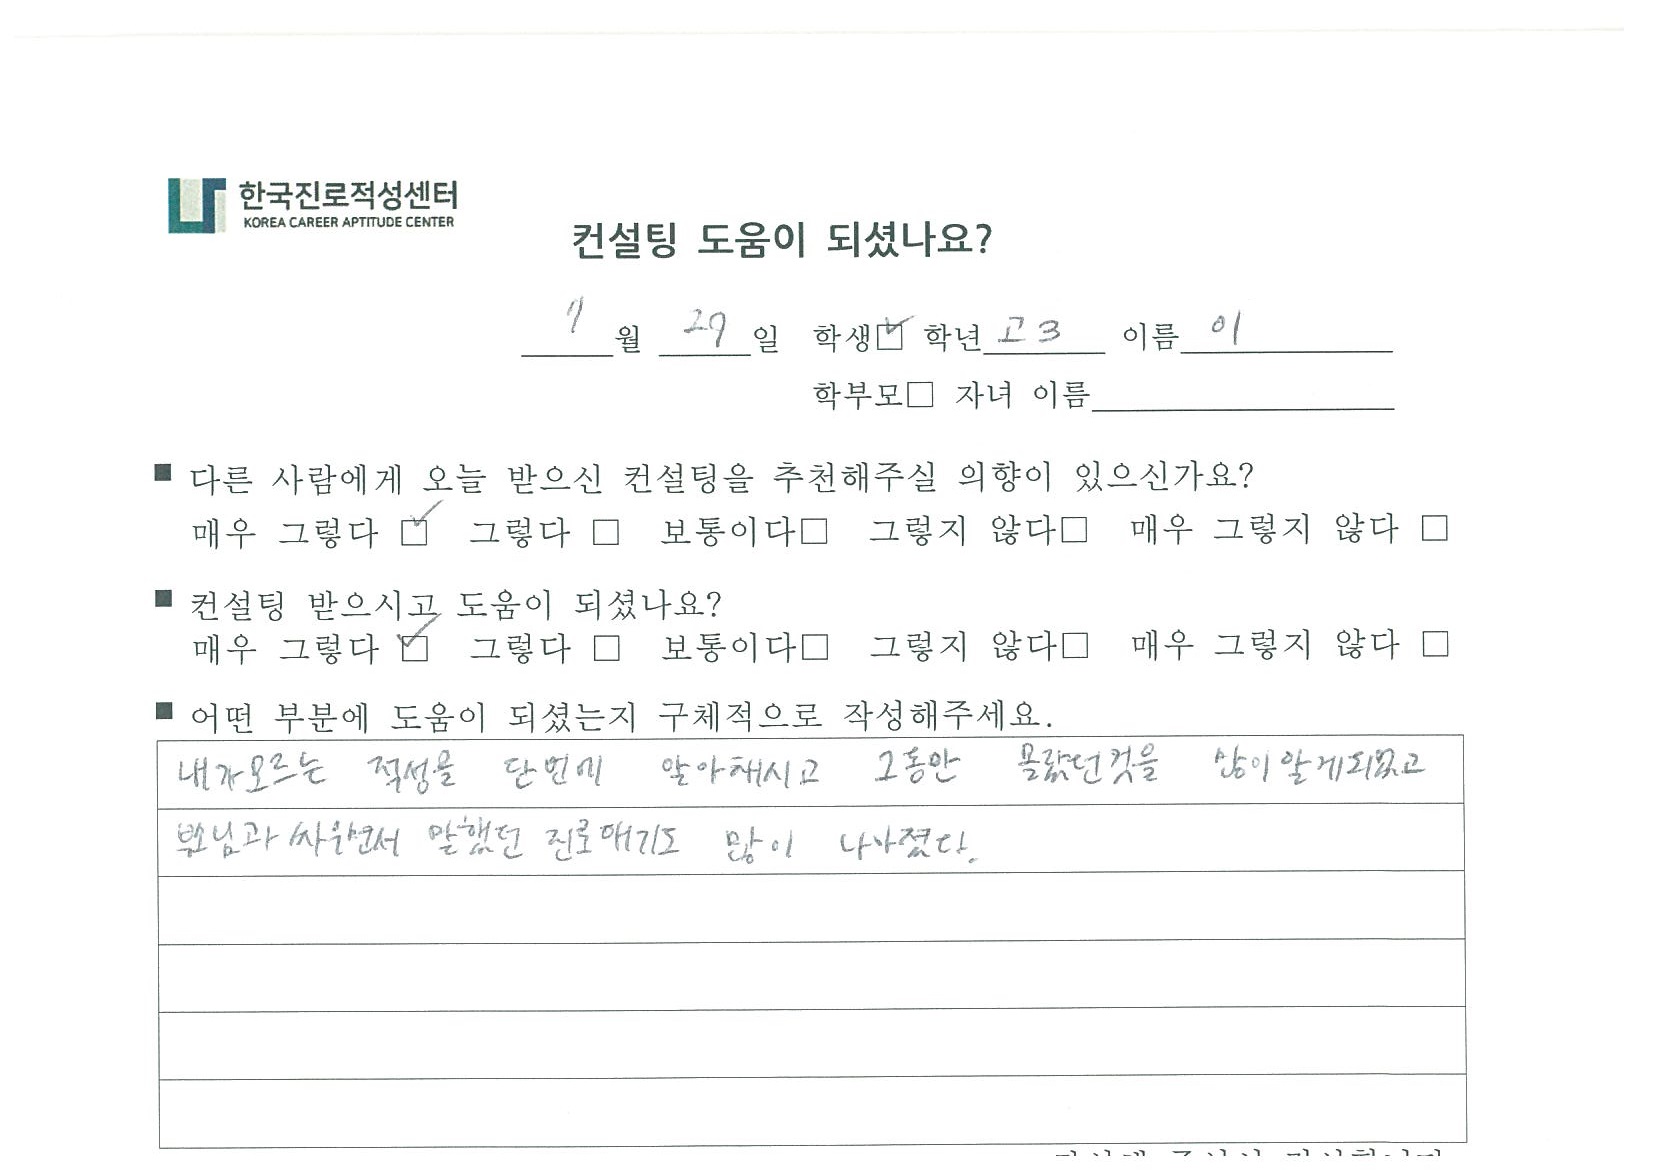 한국진로적성센터
KOREA CAREER APTITUDE CENTER
컨설팅 도움이 되셨나요?
7월 29일 학생☑ 학년 고3 이름 이
학부모□ 자녀 이름
■ 다른 사람에게 오늘 받으신 컨설팅을 추천해주실 의향이 있으신가요?
매우 그렇다 ☑ 그렇다 □ 보통이다□ 그렇지 않다□ 매우 그렇지 않다 □
■ 컨설팅 받으시고 도움이 되셨나요?
매우 그렇다 ☑ 그렇다 □ 보통이다□ 그렇지 않다□ 매우 그렇지 않다 □
■ 어떤 부분에 도움이 되셨는지 구체적으로 작성해주세요.
내가모르는 적성을 단번에 알아채시고 그동안 몰랐던것을 많이알게되었고
부모님과 싸우면서 말했던 진로얘기도 많이 나아졌다.